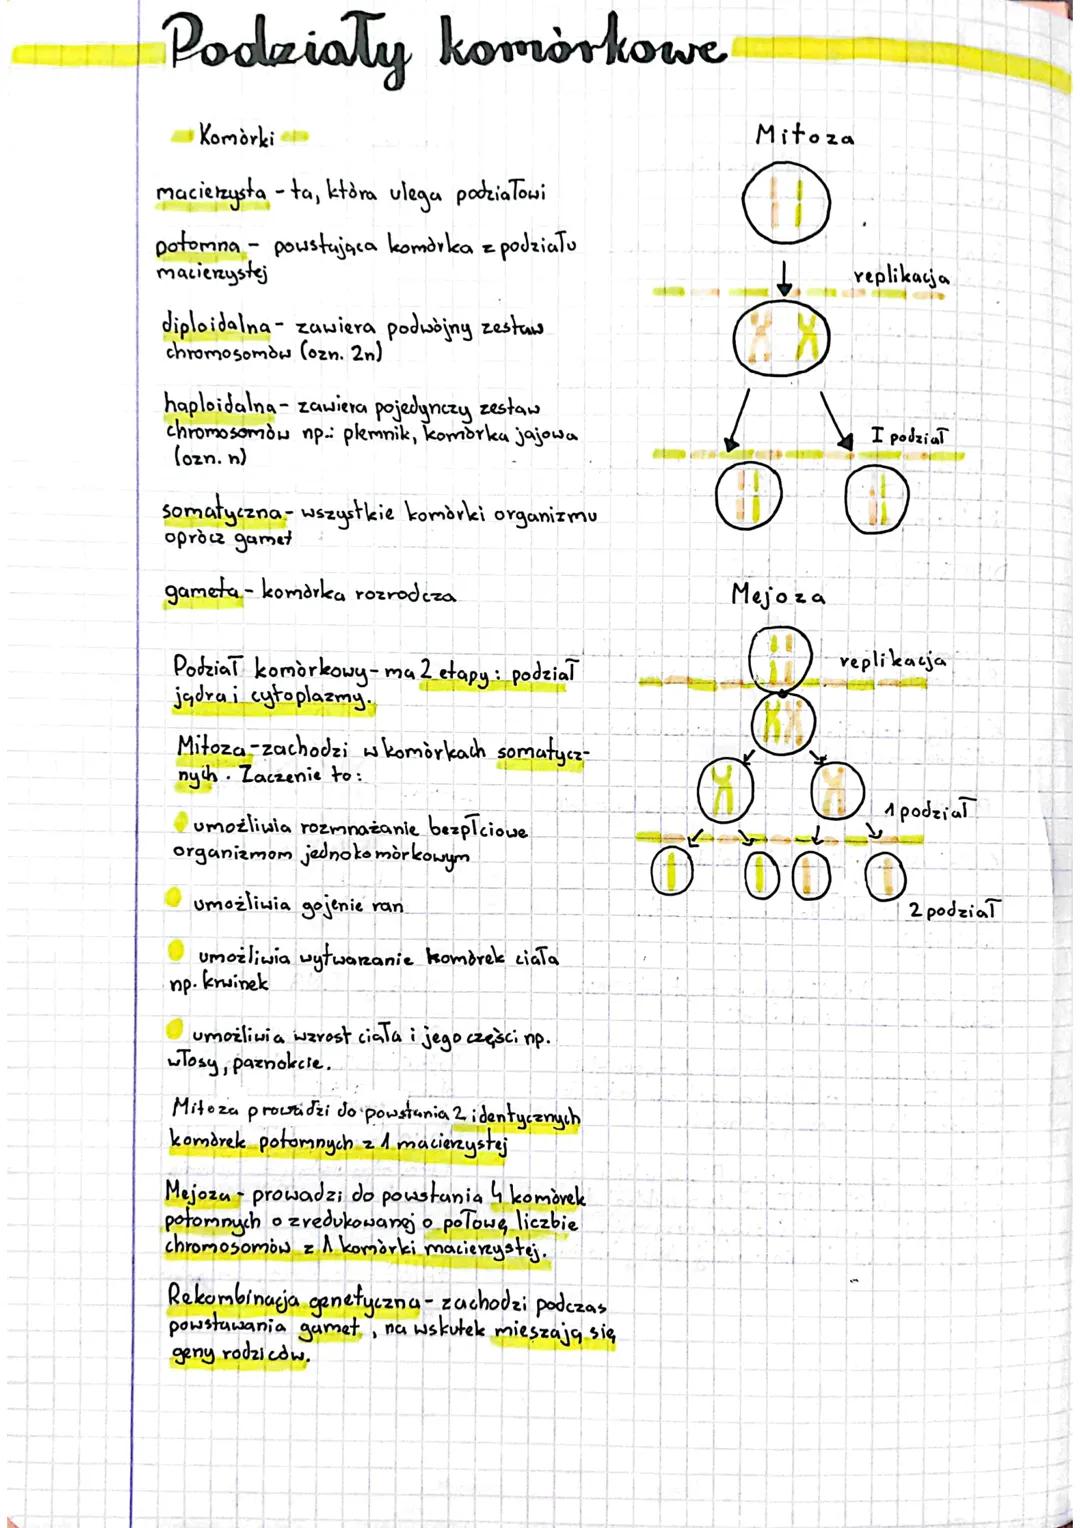 Podziały komórkowe
Komórki
macierzysta - ta, która ulega podziałowi
potomna - powstająca komórka z podziału
macierzystej
diploidalna - zawiera podwójny zestaw
chromosomów (ozn. 2n)
haploidalna - zawiera pojedynczy zestaw
chromosomów np.: plemnik, komórka jajowa
(ozn. n)
somatyczna - wszystkie komórki organizmu
oprócz gamet
gameta - komórka rozrodcza
Podział komórkowy - ma 2 etapy: podział
jądra i cytoplazmy.
Mitoza - zachodzi w komórkach somatycz-
nych. Zaczenie to:
umożliwia rozmnażanie bezpłciowe
organizmom jednokomórkowym
umożliwia gojenie ran
umożliwia wytwarzanie komórek ciała
np. krwinek
umożliwia wzrost ciała i jego części np.
włosy, paznokcie.
Mitoza prowadzi do powstania 2 identycznych
komórek potomnych z 1 macierzystej
Mejoza - prowadzi do powstania 4 komórek
potomnych o zredukowanej o połowę liczbie
chromosomów z 1 komórki macierzystej.
Rekombinacja genetyczna - zachodzi podczas
powstawania gamet, na wskutek mieszają się
geny rodziców.
Mitoza
replikacja
I podział
Mejoza
replikacja
1 podział
2 podział